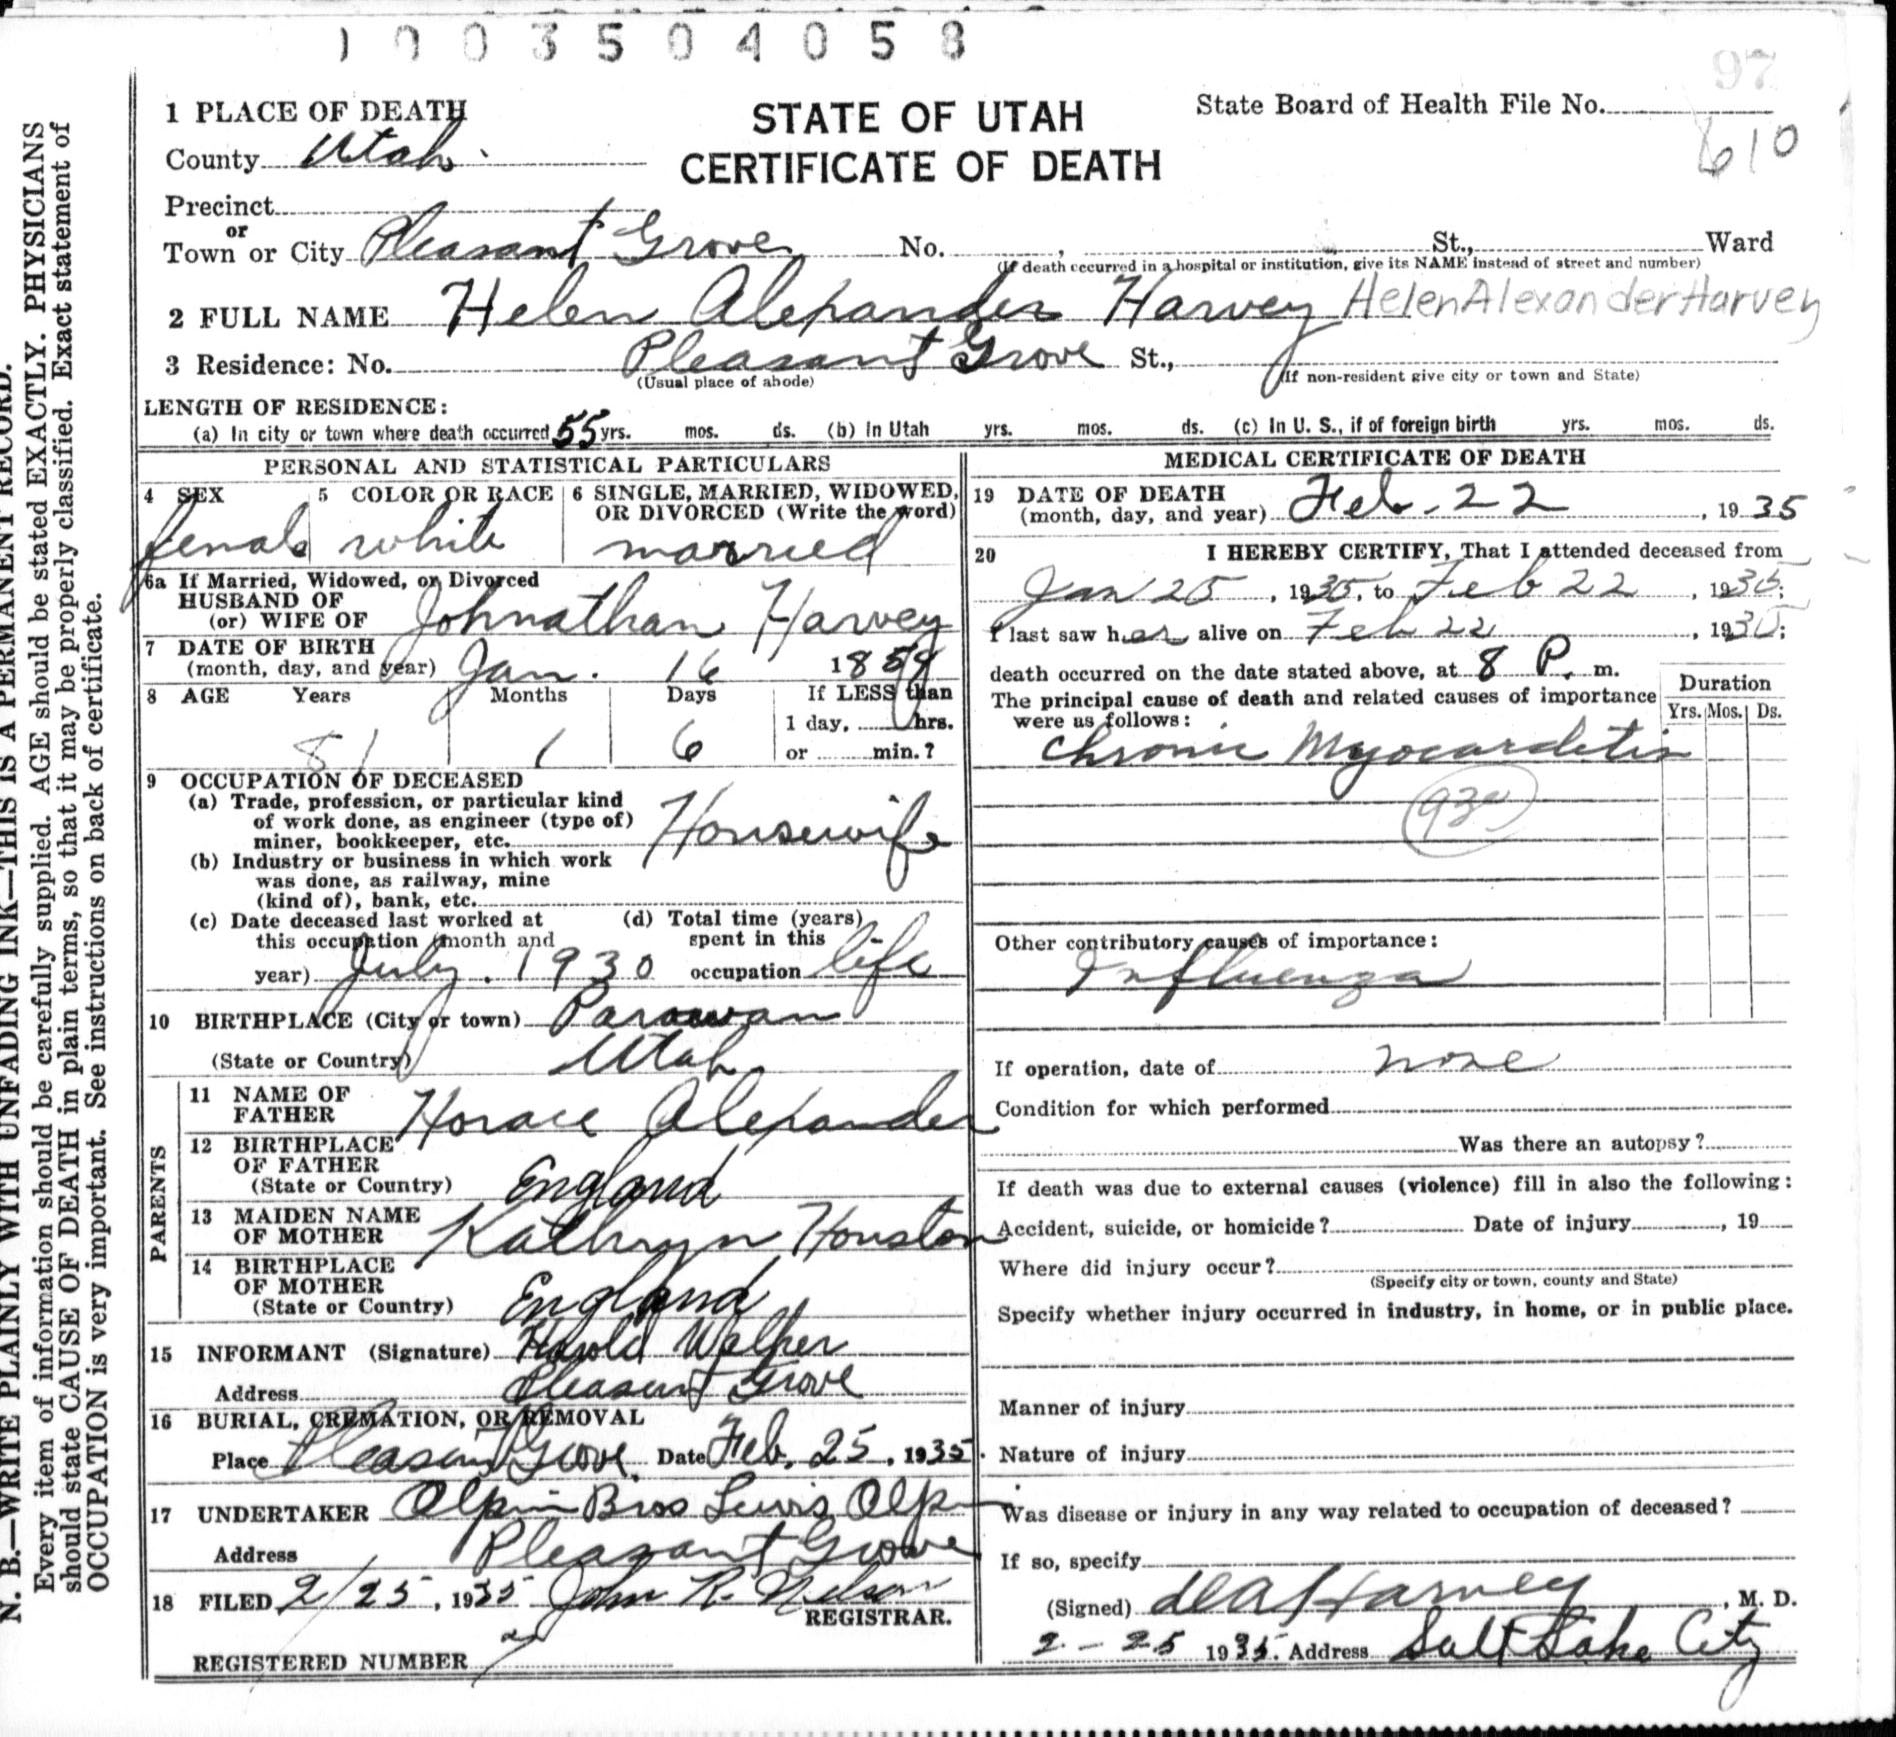 1003504058
97
1 PLACE OF DEATH
STATE OF UTAH
CERTIFICATE OF DEATH
State Board of Health File No.
610
County Utah
Precinct
or
Town or City Pleasant Grove No. , St., Ward
(If death occurred in a hospital or institution, give its NAME instead of street and number)
2 FULL NAME Helen Alexander Harvey Helen Alexander Harvey
3 Residence: No. Pleasant Grove St.,
(Usual place of abode) (If non-resident give city or town and State)
LENGTH OF RESIDENCE:
(a) In city or town where death occurred 55 yrs. mos. ds. (b) In Utah yrs. mos. ds. (c) In U. S., if of foreign birth yrs. mos. ds.
PERSONAL AND STATISTICAL PARTICULARS
4 SEX 5 COLOR OR RACE 6 SINGLE, MARRIED, WIDOWED,
OR DIVORCED (Write the word)
female white married
6a If Married, Widowed, or Divorced
HUSBAND OF
(or) WIFE OF Johnathan Harvey
7 DATE OF BIRTH
(month, day, and year) Jan. 16
8 AGE Years Months Days If LESS than
1 day, hrs.
or min.?
81 1 6
9 OCCUPATION OF DECEASED
(a) Trade, profession, or particular kind
of work done, as engineer (type of)
miner, bookkeeper, etc. Housewife
(b) Industry or business in which work
was done, as railway, mine
(kind of), bank, etc.
(c) Date deceased last worked at (d) Total time (years)
this occupation (month and spent in this
year) July. 1930 occupation life
10 BIRTHPLACE (City or town) Parowan
(State or Country) Utah
PARENTS
11 NAME OF
FATHER Horace Alexander
12 BIRTHPLACE
OF FATHER
(State or Country) England
13 MAIDEN NAME
OF MOTHER Kathryn Houston
14 BIRTHPLACE
OF MOTHER
(State or Country) England
15 INFORMANT (Signature) Harold Walker
Address Pleasant Grove
16 BURIAL, CREMATION, OR REMOVAL
Place Pleasant Grove. Date Feb. 25, 1935.
17 UNDERTAKER Olpin Bros Lewis Olpin
Address Pleasant Grove
18 FILED 2/25, 1935 John R. Nelson
REGISTRAR.
REGISTERED NUMBER
MEDICAL CERTIFICATE OF DEATH
19 DATE OF DEATH
(month, day, and year) Feb. 22, 1935
20 I HEREBY CERTIFY, That I attended deceased from
Jan 25, 1935, to Feb 22, 1935;
I last saw her alive on Feb 22, 1935;
death occurred on the date stated above, at 8 P. m.
The principal cause of death and related causes of importance
were as follows:
Duration
Yrs. Mos. Ds.
Chronic Myocarditis
Other contributory causes of importance:
Influenza
If operation, date of none
Condition for which performed
Was there an autopsy?
If death was due to external causes (violence) fill in also the following:
Accident, suicide, or homicide? Date of injury , 19
Where did injury occur?
(Specify city or town, county and State)
Specify whether injury occurred in industry, in home, or in public place.
Manner of injury
Nature of injury
Was disease or injury in any way related to occupation of deceased?
If so, specify
(Signed) Harvey, M. D.
2-25 1935. Address Salt Lake City
N. B.—WRITE PLAINLY WITH UNFADING INK—THIS IS A PERMANENT RECORD.
Every item of information should be carefully supplied. AGE should be stated EXACTLY. PHYSICIANS
should state CAUSE OF DEATH in plain terms, so that it may be properly classified. Exact statement of
OCCUPATION is very important. See instructions on back of certificate.